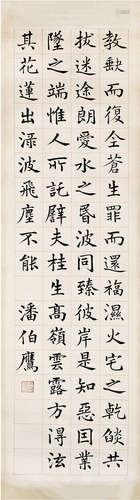 教缺而全蒼生罪而還福濕火宅之乾燄共
拔迷途朗愛水之昏波同臻彼岸是知惡因業
墜之端惟人所託譬夫桂生高嶺雲露方得泫
其花蓮出渌波飛塵不能 潘伯鷹